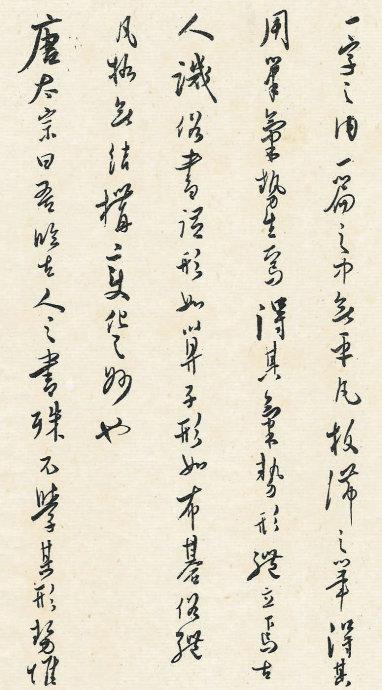 一字之内一篇之中無平凡板滯之筆得其
用筆氣勢生焉得其氣勢形體立焉古
人譏俗書謂形如算子形如布碁俗體
凡格無結構變化之妙也
唐太宗曰吾臨古人之書殊不學其形勢惟